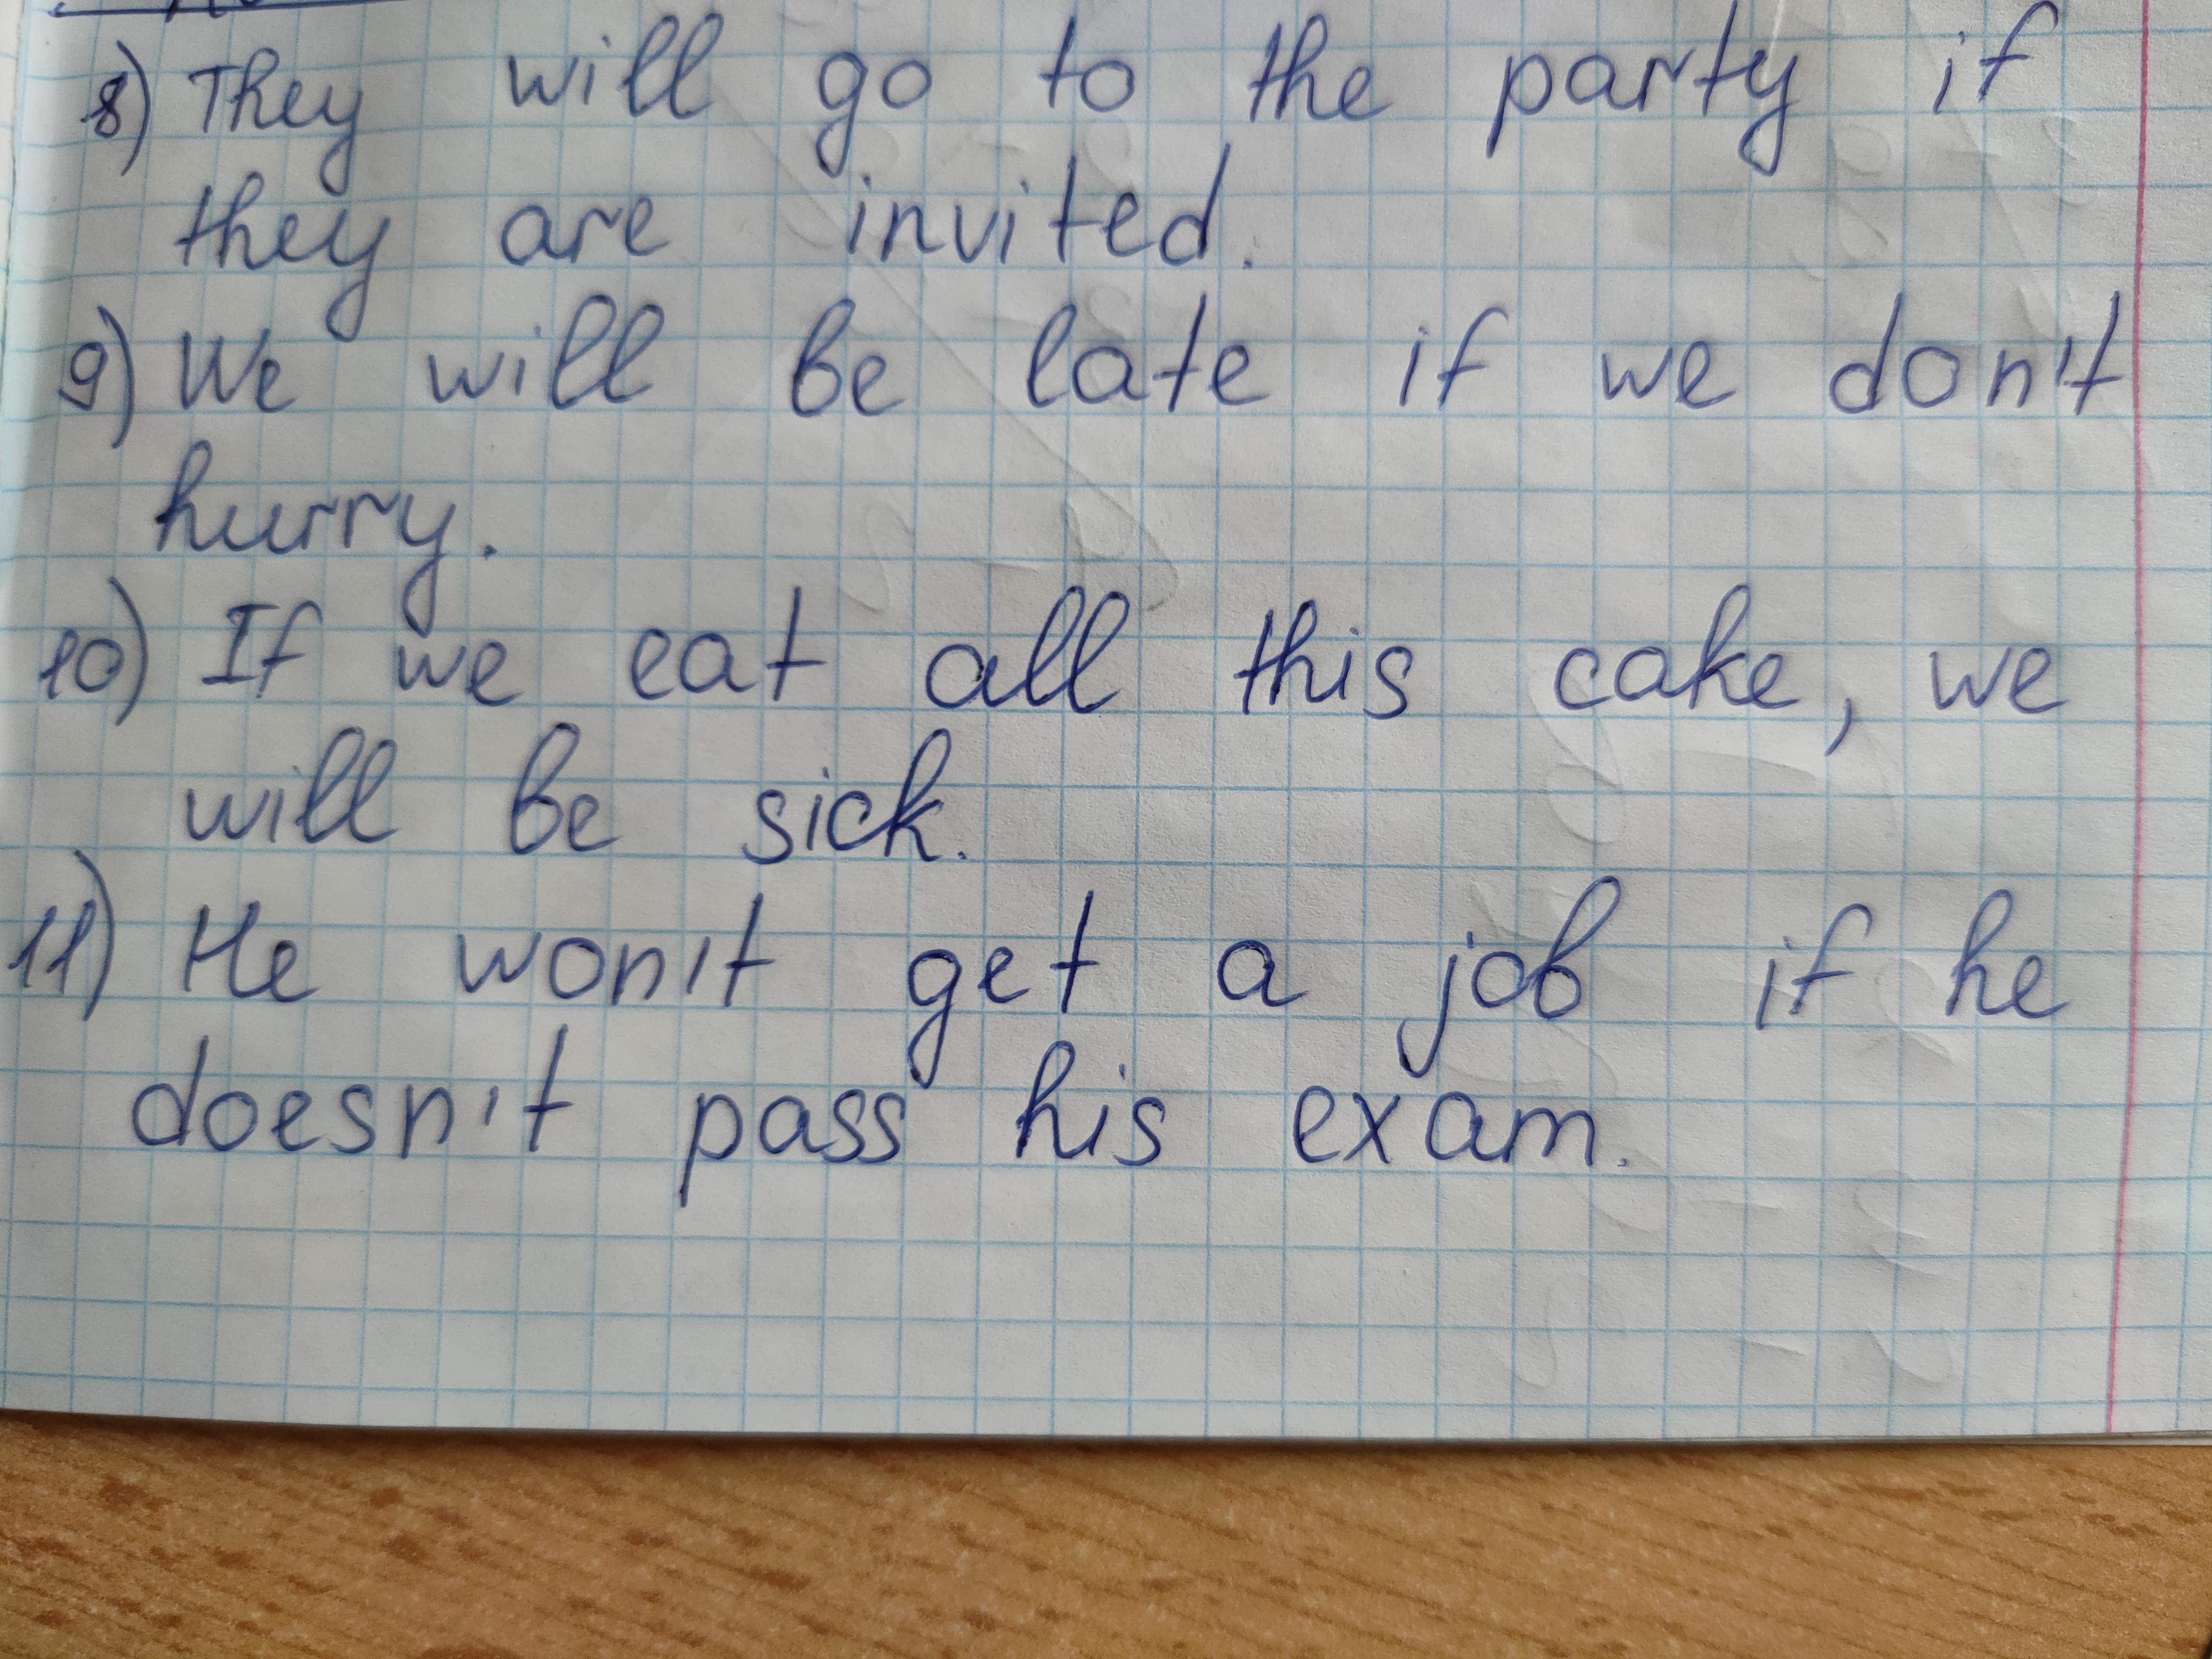 8) They will go to the party if
they are invited.
9) We will be late if we don't
hurry.
10) If we eat all this cake, we
will be sick.
11) He won't get a job if he
doesn't pass his exam.